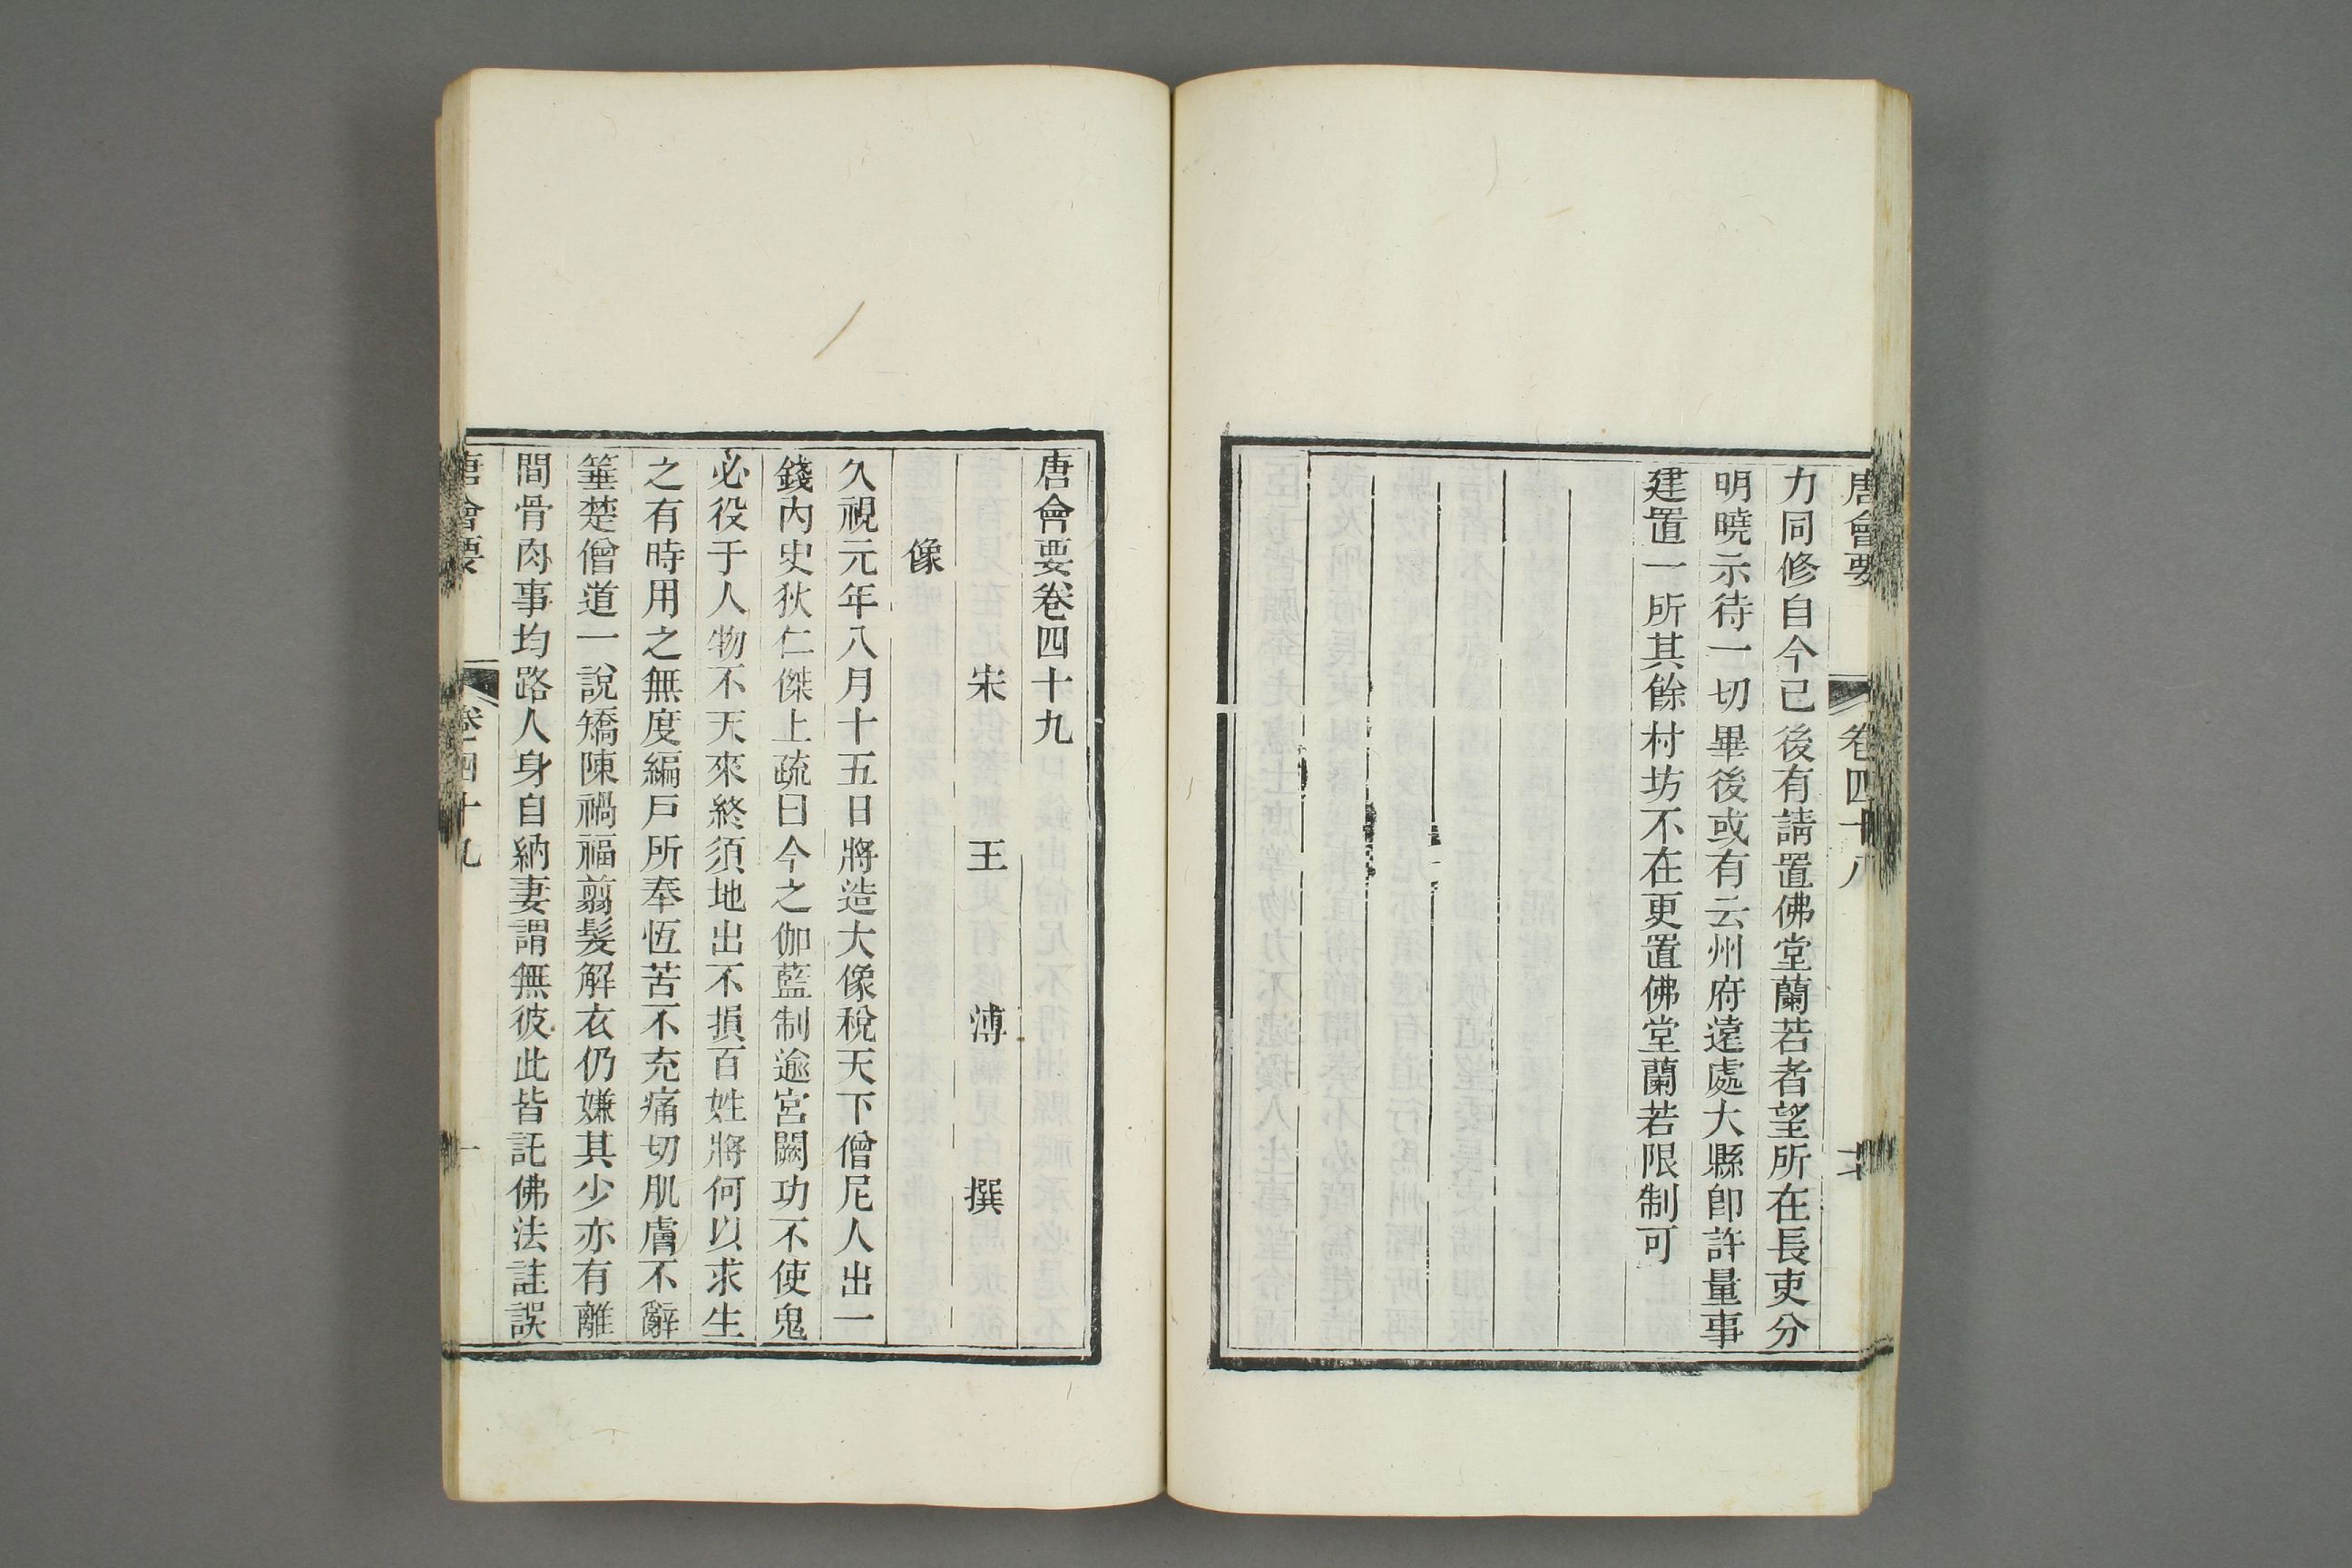 唐會要
卷四十八
力同修自今已後有請置佛堂蘭若者望所在長吏分
明曉示待一切畢後或有云州府遠處大縣即許量事
建置一所其餘村坊不在更置佛堂蘭若限制可
唐會要卷四十九
宋 王 溥 撰
像
久視元年八月十五日將造大像稅天下僧尼人出一
錢內史狄仁傑上疏曰今之伽藍制逾宮闕功不使鬼
必役于人物不天來終須地出不損百姓將何以求生
之有時用之無度編戸所奉恆苦不充痛切肌膚不辭
箠楚僧道一說矯陳禍福翦髮解衣仍嫌其少亦有離
間骨肉事均路人身自納妻謂無彼此皆託佛法詿誤
唐會要
卷四十九
一